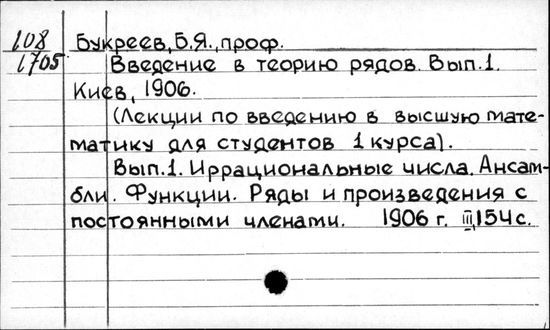 108 Букреев, Б.Я., проф.
1705 Введение в теорию рядов. Вып.1.
Киев, 1906.
(Лекции по введению в высшую мате-
матику для студентов 1 курса).
Вып.1. Иррациональные числа. Ансам-
бли. Функции. Ряды и произведения с
постоянными членами. 1906 г. III, 154 с.